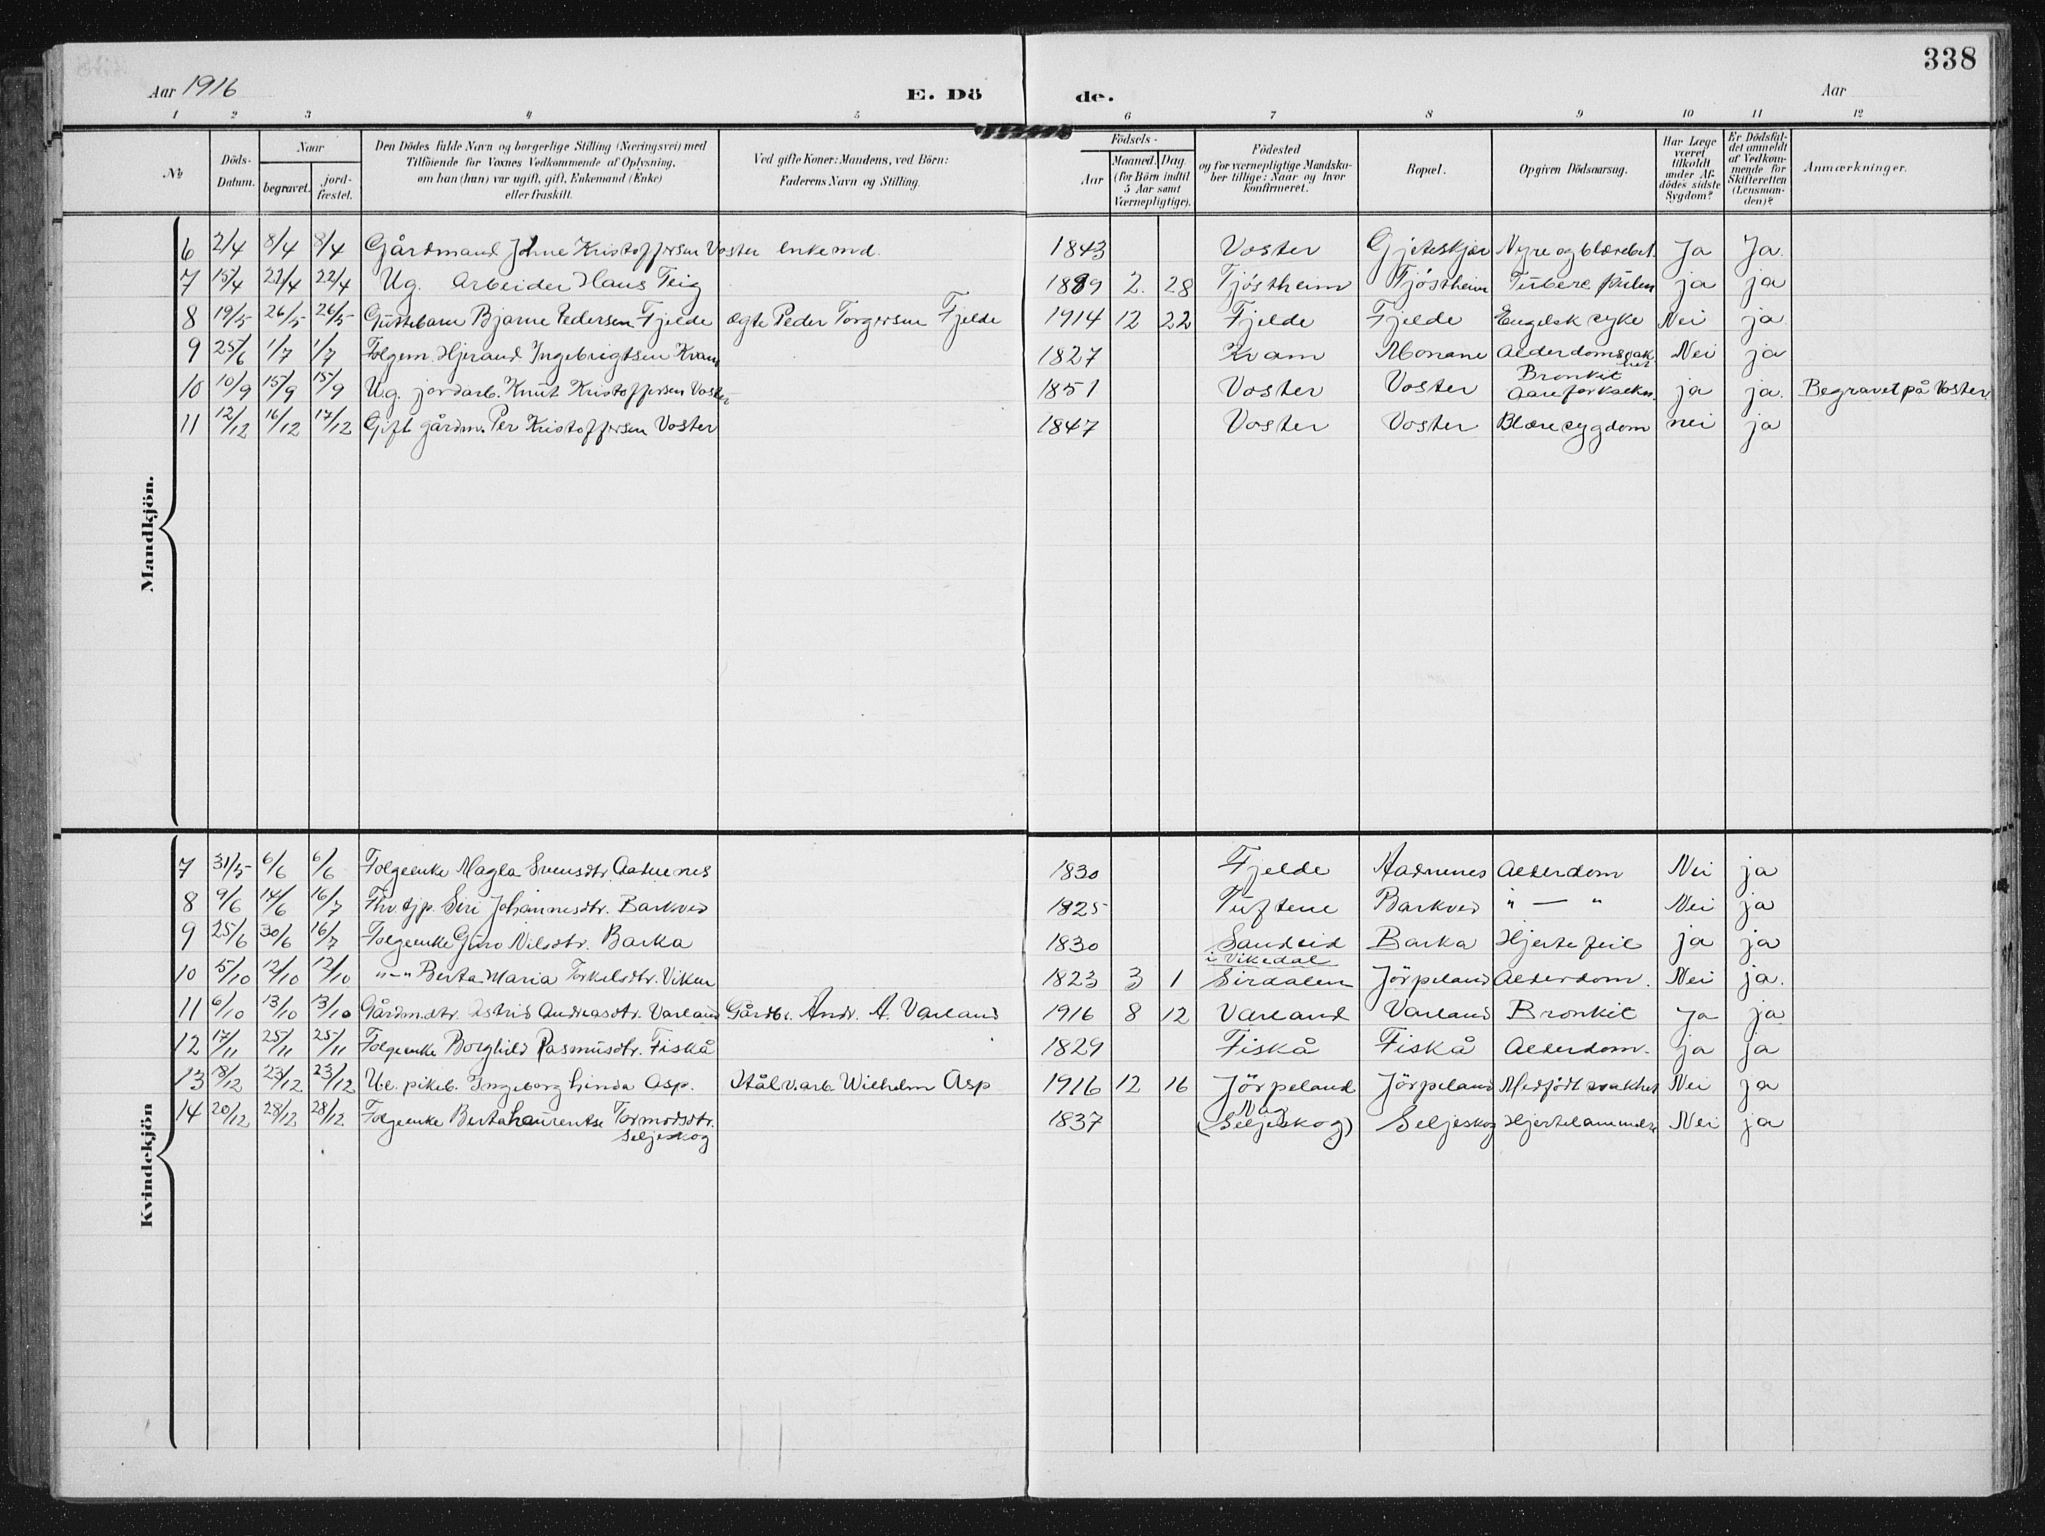 338
Aar 1916 E. Dö de. Aar
1 2 3 4 5 6 7 8 9 10 11 12
№ Döds-Datum. Naar begravet. jord-fæstet. Den Dödes fulde Navn og borgerlige Stilling (Næringsvei) med Tilföiende for Voxnes Vedkommende af Oplysning, om han (hun) var ugift, gift, Enkemand (Enke) eller fraskilt. Ved gifte Koner: Mandens, ved Börn: Faderens Navn og Stilling. Födsels- Aar Maaned. Dag. (for Börn indtil 5 Aar samt Værnepligtige). Födested og for værnepligtige Mandskaber tillige: Naar og hvor Konfirmeret. Bopæl. Opgiven Dödsaarsag. Har Læge været tilkaldt under Afdödes sidste Sygdom? Er Dödsfaldet anmeldt af Vedkommende for Skifteretten (Lensmanden)? Anmærkninger.
Mandkjön.
6 2/4 8/4 8/4 Gårdmand Johne Kristoffersen Voster enkemd. 1843 Voster Gjeteskjær Nyre og blærebet. Ja Ja.
7 15/4 22/4 22/4 Ug. Arbeider Hans Teig 1889 2. 28 Tjöstheim Tjöstheim Tuberc pulm ja ja
8 19/5 26/5 26/5 Guttebarn Bjarne Pedersen Fjelde ægte Peder Torgersen Fjelde 1914 12 22 Fjelde Fjelde Engelsk syke Nei ja
9 25/6 1/7 1/7 Folgem. Hjerand Ingebrigtsen Kvam 1827 Kvam Monane Alderdomssvakhet Nei ja
10 10/9 15/9 15/9 Ug. jordarb. Knut Kristoffersen Voster 1851 Voster Voster Bronkit Aareforkalkn. ja ja. Begravet på Voster
11 12/12 16/12 17/12 Gift gårdm. Per Kristoffersen Voster 1847 Voster Voster Blæresygdom nei ja
Kvindekjön
7 31/5 6/6 6/6 Folgeenke Magla Svensdtr. Aadnenes 1830 Fjelde Aadnenes Alderdom Nei ja
8 9/6 14/6 16/7 Fhv. tjp. Siri Johannesdtr. Barkved 1825 Tuftene Barkved " — " Nei ja
9 25/6 30/6 16/7 Folgeenke Guro Nilsdtr. Barka 1830 Sandeid i Vikedal Barka Hjertefeil ja ja
10 5/10 12/10 12/10 "—" Berta Maria Torkelsdtr. Viken 1823 3 1 Sirdalen Jörpeland Alderdom. Nei ja.
11 6/10 13/10 13/10 Gårdm.dtr. Astrid Andreasdtr. Varland Gårdbr. Andr. A. Varland 1916 8 12 Varland Varland Bronkit Ja ja
12 17/11 25/11 25/11 Folgeenke Borghild Rasmusdtr. Fiskå 1829 Fiskå Fiskå Alderdom. ja ja
13 18/12 23/12 23/12 Ue. pikeb. Ingeborg Linda Asp. Stålv.arb. Wilhelm Asp 1916 12 16 Jörpeland Jörpeland Medfödt svakhet Nei ja
14 20/12 28/12 28/12 Folgeenke Berta Laurentse Tormodsdtr. Seljeskog 1837 Nag (Seljeskog) Seljeskog Hjertelammelse Nei ja